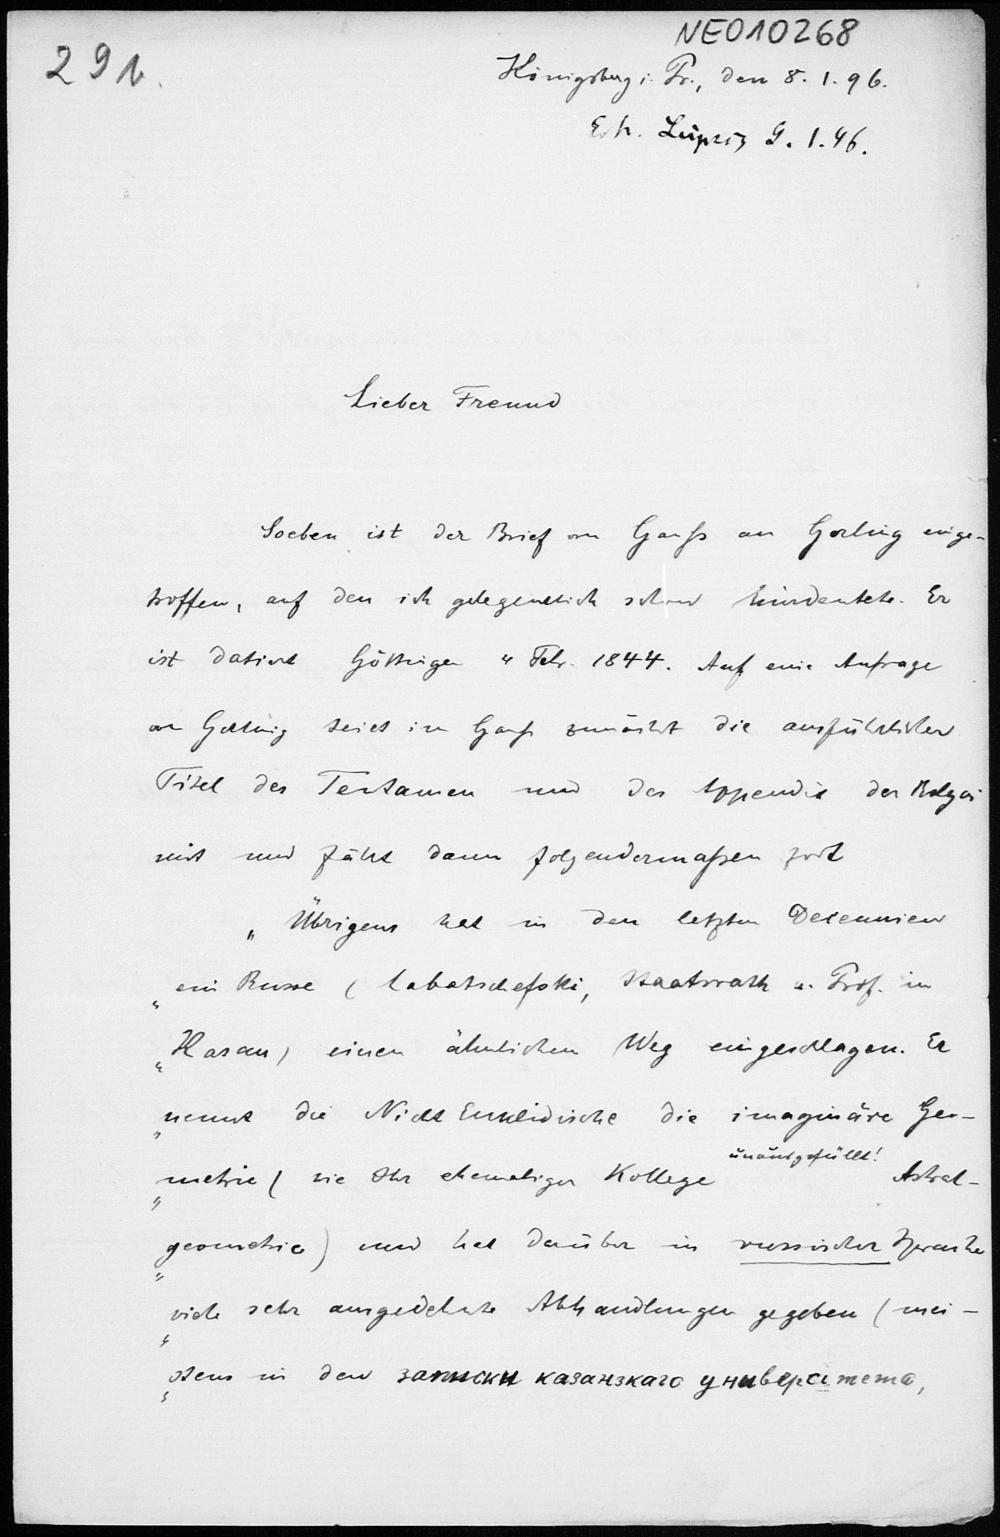 NE010268
291.
Königsberg i. Pr., den 8. 1. 96.
Erh. Leipzig 9. 1. 96.
Lieber Freund
Soeben ist der Brief von Gauß an Gerling einge-
troffen, auf den ich gelegentlich schon hindeutete. Er
ist datirt Göttingen 4 Febr. 1844. Auf eine Anfrage
von Gerling teilt ihm Gauß zunächst die ausführlichen
Titel des Tentamen und des Appendix der Bolyai
mit und fährt dann folgendermaßen fort
„Übrigens hat in den letzten Decennien
„ein Russe (Labatschefski, Staatsrath u. Prof. in
„Kasan) einen ähnlichen Weg eingeschlagen. Er
„nennt die Nicht Euklidische die imaginäre Geo-
unausgefüllt!
„metrie (wie Ihr ehemaliger Kollege Astral-
„geometrie) und hat darüber in russischer Sprache
„viele sehr ausgedehnte Abhandlungen gegeben (mei-
„stens in den записки казанзкаго университета,